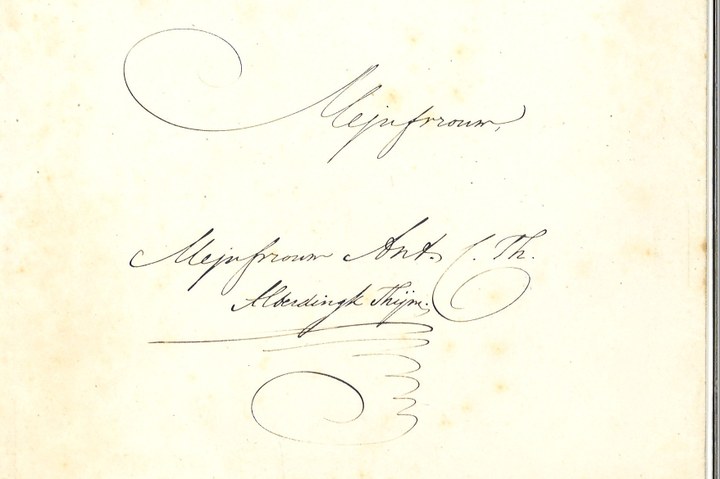 Mejufvrouw,
Mejufvrouw Ant. C. Th.
Alberdingk Thijm.